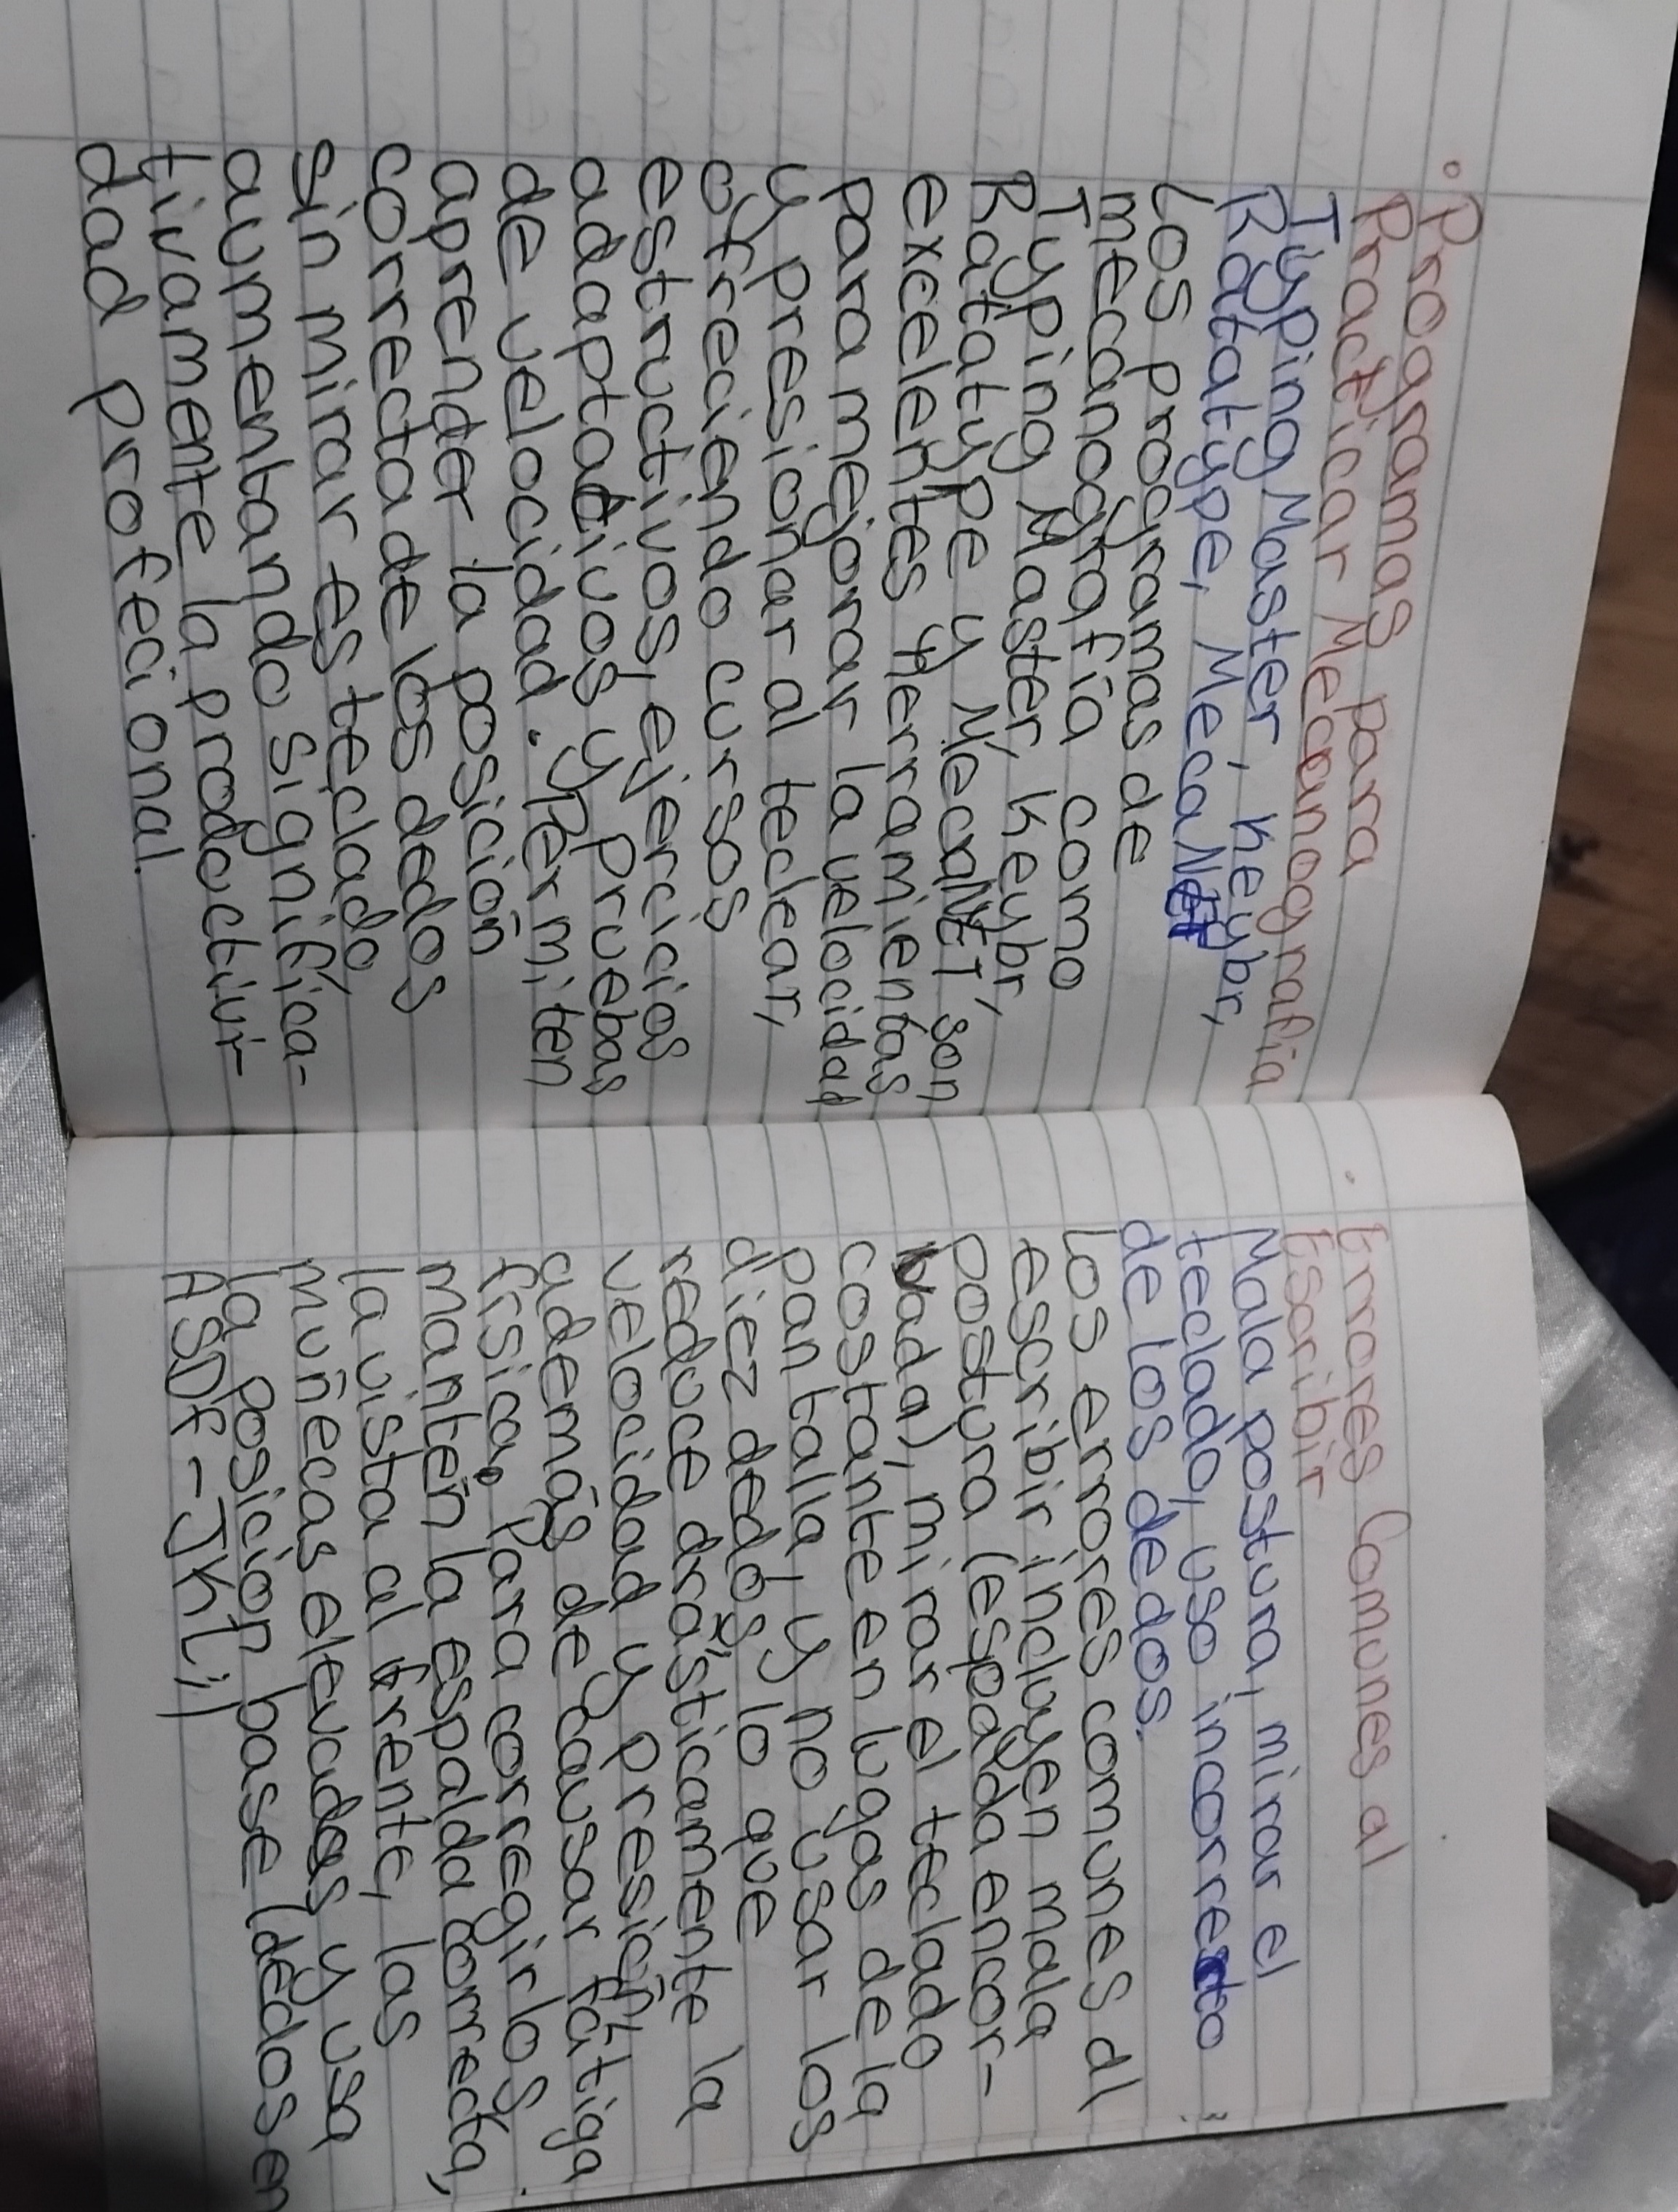 • Programas para
Practicar Mecanografia
Typing Master, keybr,
Ratatype, MecaNet
Los programas de
mecanografía como
Typing Master, keybr,
Ratatype y MecaNET son
excelentes herramientas
para mejorar la velocidad
y presionar al teclear,
ofreciendo cursos
estructivos, ejercicios
adaptativos y pruebas
de velocidad. Y Permiten
aprender la posición
correcta de los dedos
sin mirar es teclado,
aumentando significa-
tivamente la productivi-
dad profecional.
• Errores Comunes al
Escribir
Mala postura, mirar el
teclado, uso incorrecto
de los dedos.
Los errores comunes al
escribir incluyen mala
postura (espalda encor-
vada), mirar el teclado
costante en lugas de la
pantalla, y no usar los
diez dedos, lo que
reduce drásticamente la
velocidad y presición,
además de causar fatiga
física. Para corregirlos,
mantén la espalda correcta,
la vista al frente, las
muñecas elevadas y usa
la posición base (dedos en
ASDF-JKL;)